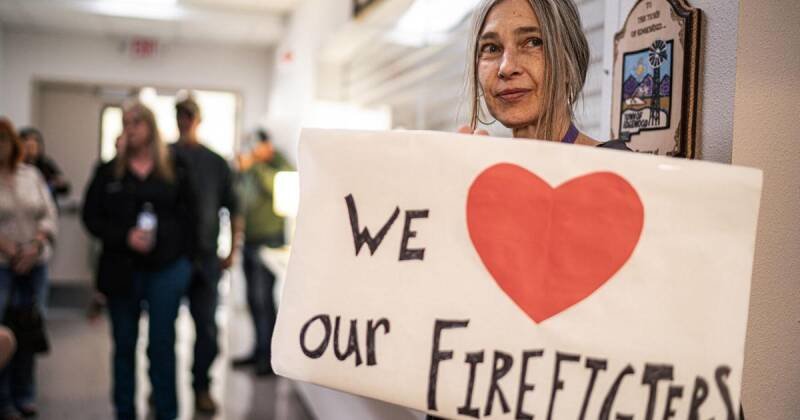 WE
our FIREFIGTERS
TO
THE TOWN
OF EDGEWOOD...
TOWN OF
EDGEWOOD
EXIT